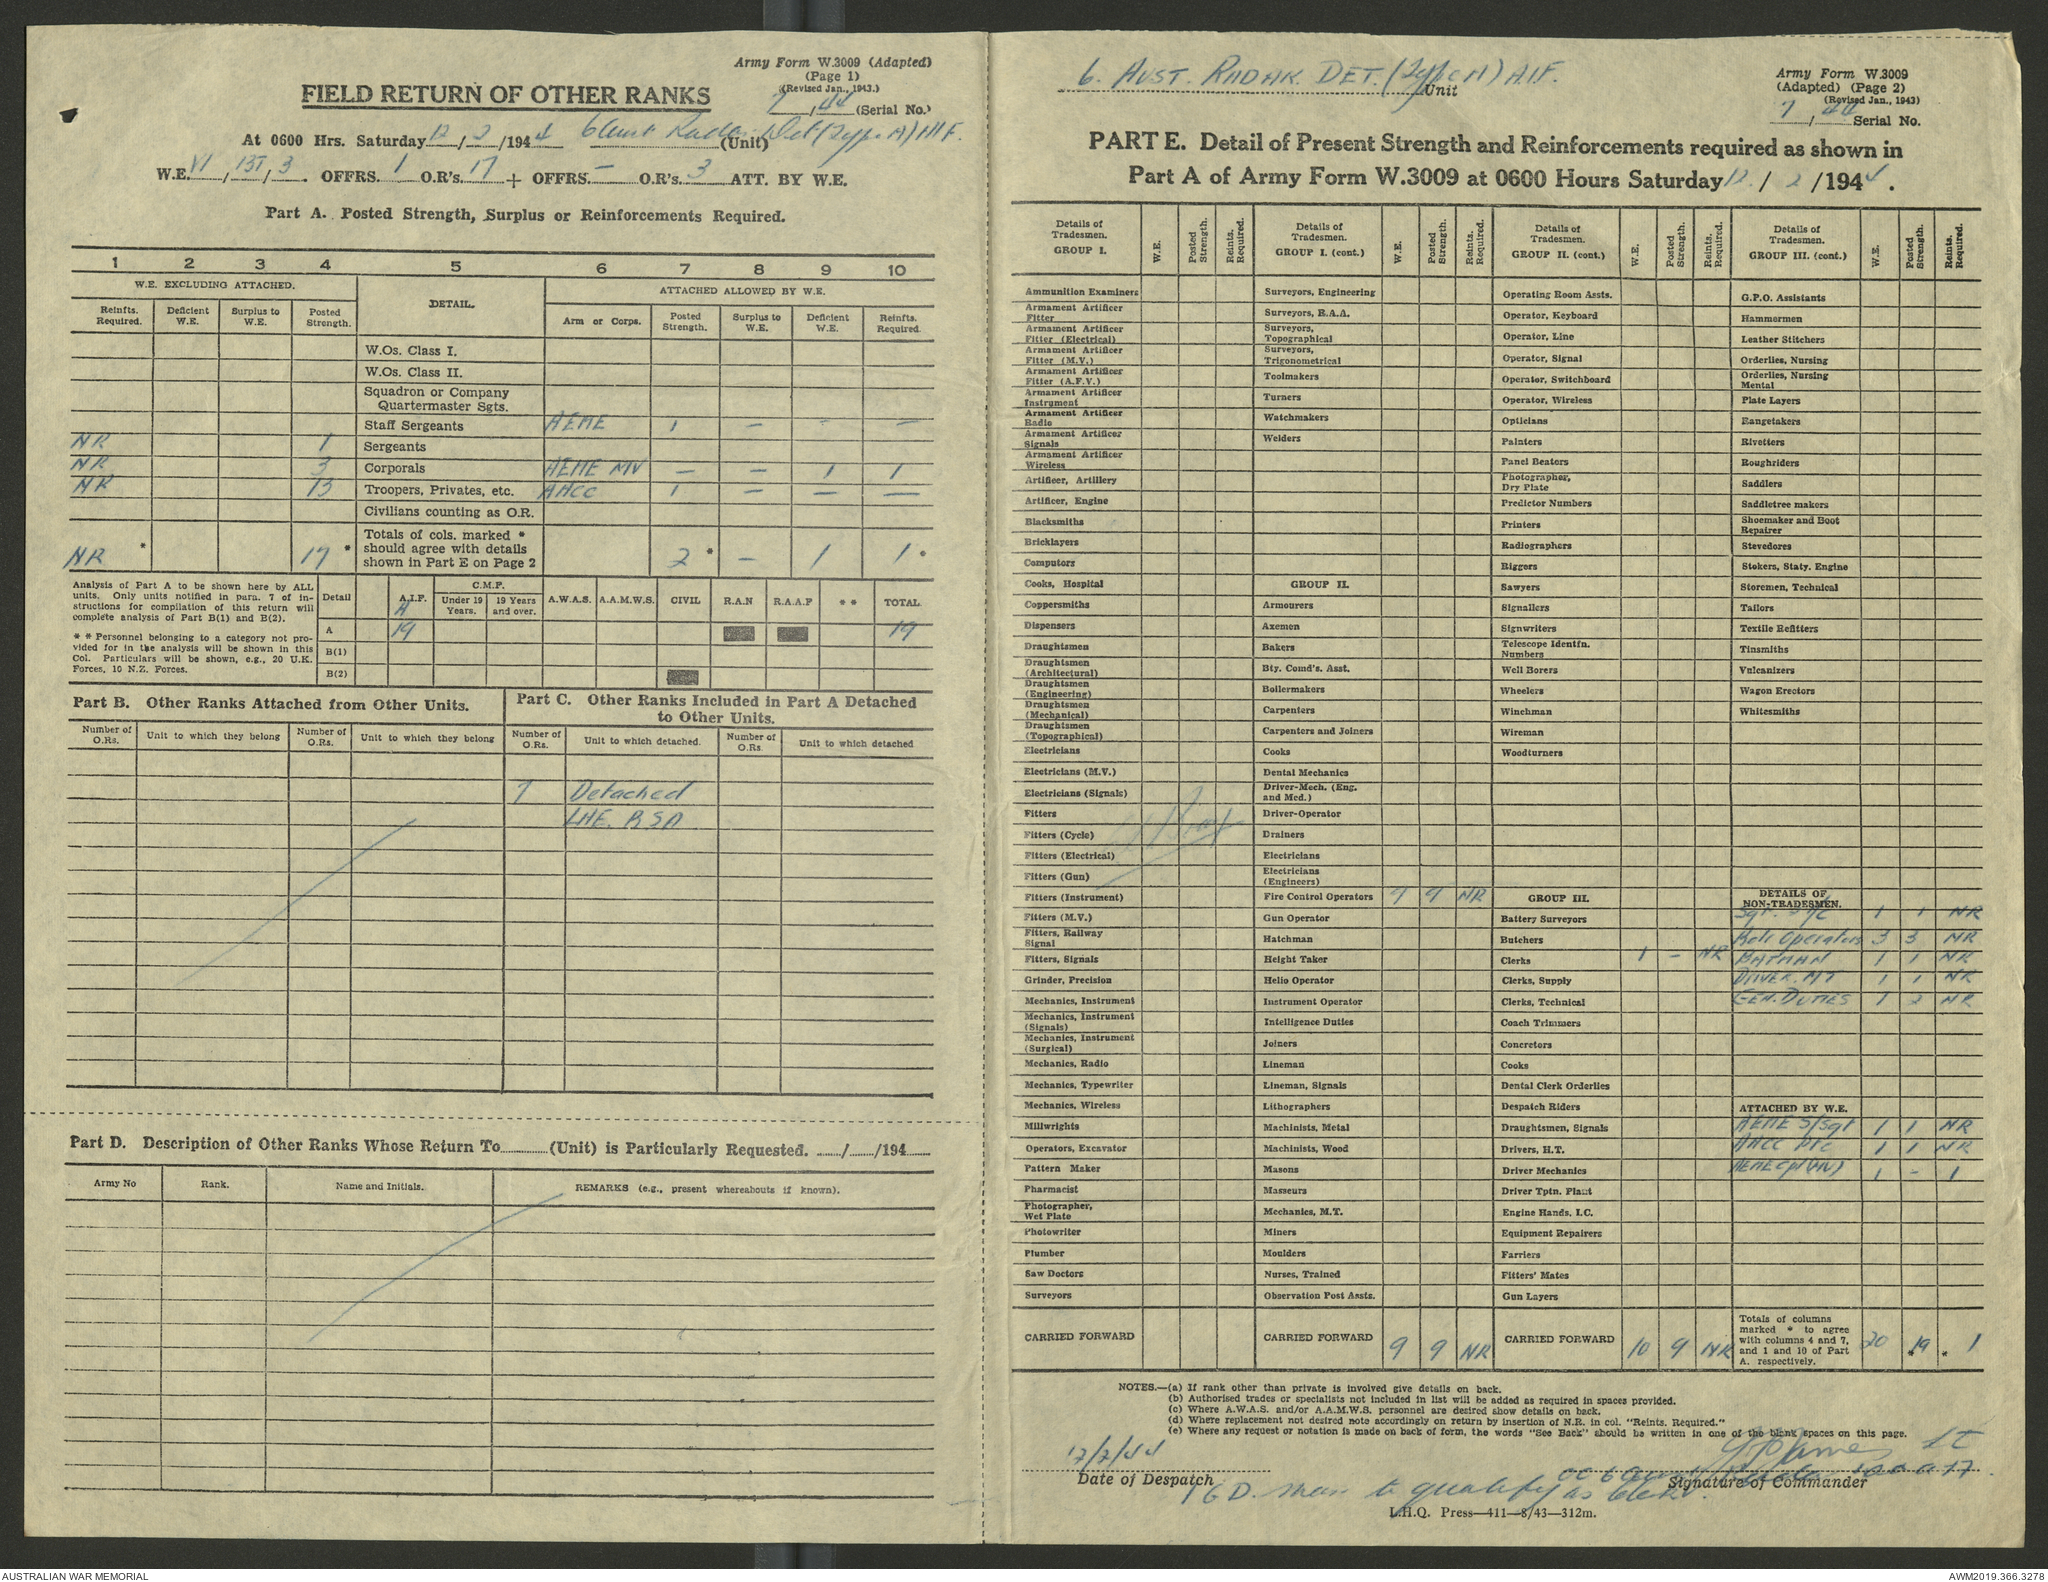 Army Form W.3009 (Adapted)
(Page 1)
(Revised Jan., 1943.)
FIELD RETURN OF OTHER RANKS
7 / 44 (Serial No.)
At 0600 Hrs. Saturday 12 / 2 / 1944 6 Aust Radar Det (Type A) AIF. (Unit)
W.E. VI / 13T / 3. OFFRS. 1 O.R's. 17 + OFFRS. — O.R's. 3 ATT. BY W.E.
Part A. Posted Strength, Surplus or Reinforcements Required.
1 2 3 4 5 6 7 8 9 10
W.E. EXCLUDING ATTACHED. DETAIL. ATTACHED ALLOWED BY W.E.
Reinfts. Required. Deficient W.E. Surplus to W.E. Posted Strength. Arm or Corps. Posted Strength. Surplus to W.E. Deficient W.E. Reinfts. Required.
W.Os. Class I.
W.Os. Class II.
Squadron or Company Quartermaster Sgts.
Staff Sergeants AEME 1 — — —
NR 1 Sergeants
NR 3 Corporals AEME MV — — 1 1
NR 13 Troopers, Privates, etc. AACC 1 — — —
Civilians counting as O.R.
NR * 17 * Totals of cols. marked * should agree with details shown in Part E on Page 2 2 * — 1 1 *
Analysis of Part A to be shown here by ALL units. Only units notified in para. 7 of instructions for compilation of this return will complete analysis of Part B(1) and B(2).
* * Personnel belonging to a category not provided for in the analysis will be shown in this Col. Particulars will be shown, e.g., 20 U.K. Forces, 10 N.Z. Forces.
Detail A.I.F. C.M.F. Under 19 Years. 19 Years and over. A.W.A.S. A.A.M.W.S. CIVIL R.A.N R.A.A.F * * TOTAL
A 19 19
B(1)
B(2)
Part B. Other Ranks Attached from Other Units.
Part C. Other Ranks Included in Part A Detached to Other Units.
Number of O.Rs. Unit to which they belong Number of O.Rs. Unit to which they belong Number of O.Rs. Unit to which detached. Number of O.Rs. Unit to which detached
7 Detached
LHE. RSD
Part D. Description of Other Ranks Whose Return To (Unit) is Particularly Requested. / /194
Army No Rank. Name and Initials. REMARKS (e.g., present whereabouts if known).
6. AUST. RADAR. DET. (Type A) A.I.F.
Unit
Army Form W.3009
(Adapted) (Page 2)
(Revised Jan., 1943)
7 / 44 Serial No.
PART E. Detail of Present Strength and Reinforcements required as shown in
Part A of Army Form W.3009 at 0600 Hours Saturday 12 / 2 / 1944.
Details of Tradesmen. GROUP I. W.E. Posted Strength. Reints. Required.
Ammunition Examiners
Armament Artificer Fitter
Armament Artificer Fitter (Electrical)
Armament Artificer Fitter (M.V.)
Armament Artificer Fitter (A.F.V.)
Armament Artificer Instrument
Armament Artificer Radio
Armament Artificer Signals
Armament Artificer Wireless
Artificer, Artillery
Artificer, Engine
Blacksmiths
Bricklayers
Computors
Cooks, Hospital
Coppersmiths
Dispensers
Draughtsmen
Draughtsmen (Architectural)
Draughtsmen (Engineering)
Draughtsmen (Mechanical)
Draughtsmen (Topographical)
Electricians
Electricians (M.V.)
Electricians (Signals)
Fitters
Fitters (Cycle)
Fitters (Electrical)
Fitters (Gun)
Fitters (Instrument)
Fitters (M.V.)
Fitters, Railway Signal
Fitters, Signals
Grinder, Precision
Mechanics, Instrument
Mechanics, Instrument (Signals)
Mechanics, Instrument (Surgical)
Mechanics, Radio
Mechanics, Typewriter
Mechanics, Wireless
Millwrights
Operators, Excavator
Pattern Maker
Pharmacist
Photographer, Wet Plate
Photowriter
Plumber
Saw Doctors
Surveyors
CARRIED FORWARD
Details of Tradesmen. GROUP I. (cont.) W.E. Posted Strength. Reints. Required.
Surveyors, Engineering
Surveyors, R.A.A.
Surveyors, Topographical
Surveyors, Trigonometrical
Toolmakers
Turners
Watchmakers
Welders
GROUP II.
Armourers
Axemen
Bakers
Bty. Comd's. Asst.
Boilermakers
Carpenters
Carpenters and Joiners
Cooks
Dental Mechanics
Driver-Mech. (Eng. and Med.)
Driver-Operator
Drainers
Electricians
Electricians (Engineers)
Fire Control Operators 9 9 NR
Gun Operator
Hatchman
Height Taker
Helio Operator
Instrument Operator
Intelligence Duties
Joiners
Lineman
Lineman, Signals
Lithographers
Machinists, Metal
Machinists, Wood
Masons
Masseurs
Mechanics, M.T.
Miners
Moulders
Nurses, Trained
Observation Post Assts.
CARRIED FORWARD 9 9 NR
Details of Tradesmen. GROUP II. (cont.) W.E. Posted Strength. Reints. Required.
Operating Room Assts.
Operator, Keyboard
Operator, Line
Operator, Signal
Operator, Switchboard
Operator, Wireless
Opticians
Painters
Panel Beators
Photographer, Dry Plate
Predictor Numbers
Printers
Radiographers
Riggers
Sawyers
Signallers
Signwriters
Telescope Identfn. Numbers
Well Borers
Wheelers
Winchman
Wireman
Woodturners
GROUP III.
Battery Surveyors
Butchers
Clerks 1 — NR
Clerks, Supply
Clerks, Technical
Coach Trimmers
Concretors
Cooks
Dental Clerk Orderlies
Despatch Riders
Draughtsmen, Signals
Drivers, H.T.
Driver Mechanics
Driver Tptn. Plant
Engine Hands, I.C.
Equipment Repairers
Farriers
Fitters' Mates
Gun Layers
CARRIED FORWARD 10 9 NR
Details of Tradesmen. GROUP III. (cont.) W.E. Posted Strength. Reints. Required.
G.P.O. Assistants
Hammermen
Leather Stitchers
Orderlies, Nursing
Orderlies, Nursing Mental
Plate Layers
Rangetakers
Rivetters
Roughriders
Saddlers
Saddletree makers
Shoemaker and Boot Repairer
Stevedores
Stokers, Staty. Engine
Storemen, Technical
Tailors
Textile Refitters
Tinsmiths
Vulcanizers
Wagon Erectors
Whitesmiths
DETAILS OF NON-TRADESMEN.
Sgt. 1 1 NR
Operators 3 3 NR
BATMAN 1 1 NR
DRIVER. MT 1 1 NR
GEN. DUTIES 1 2 NR
ATTACHED BY W.E.
AEME S/Sgt 1 1 NR
AACC Pte 1 1 NR
AEME Cpl (MV) 1 — 1
Totals of columns marked * to agree with columns 4 and 7, and 1 and 10 of Part A. respectively. 20 19 * * 1
NOTES.—(a) If rank other than private is involved give details on back.
(b) Authorised trades or specialists not included in list will be added as required in spaces provided.
(c) Where A.W.A.S. and/or A.A.M.W.S. personnel are desired show details on back.
(d) Where replacement not desired note accordingly on return by insertion of N.R. in col. "Reints. Required."
(e) Where any request or notation is made on back of form, the words "See Back" should be written in one of the blank spaces on this page.
12/2/44
Lt
Date of Despatch
OC 6 Aust
Signature of Commander
1 G D. man to qualify as Clerk.
L.H.Q. Press—411—8/43—312m.
AUSTRALIAN WAR MEMORIAL
AWM2019.366.3278